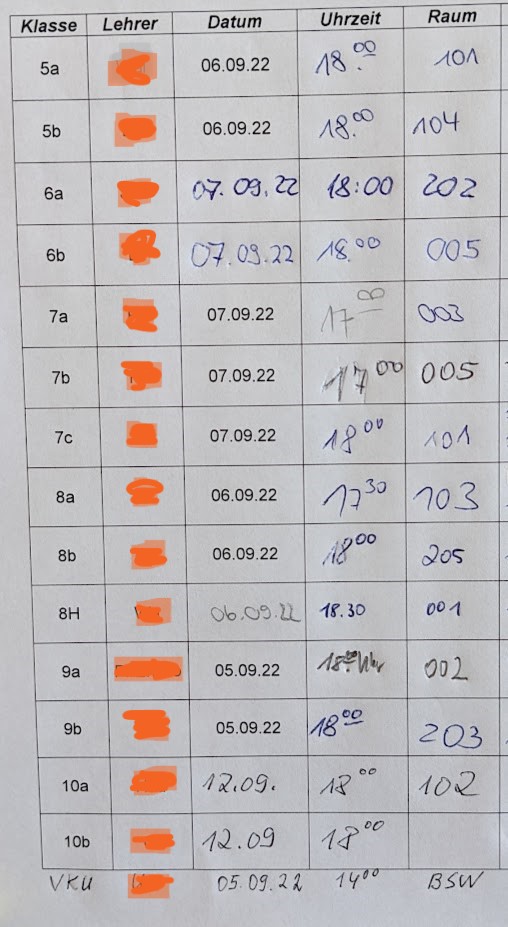 Klasse Lehrer Datum Uhrzeit Raum
5a 06.09.22 18.00 101
5b 06.09.22 18.00 104
6a 07.09.22 18:00 202
6b 07.09.22 18.00 005
7a 07.09.22 17 00 003
7b 07.09.22 17 00 005
7c 07.09.22 18 00 101
8a 06.09.22 17 30 103
8b 06.09.22 18 00 205
8H 06.09.22 18.30 001
9a 05.09.22 18.00 Uhr 002
9b 05.09.22 18 00 203
10a 12.09. 18 00 102
10b 12.09 18 00
VKU 05.09.22 14 00 BSW